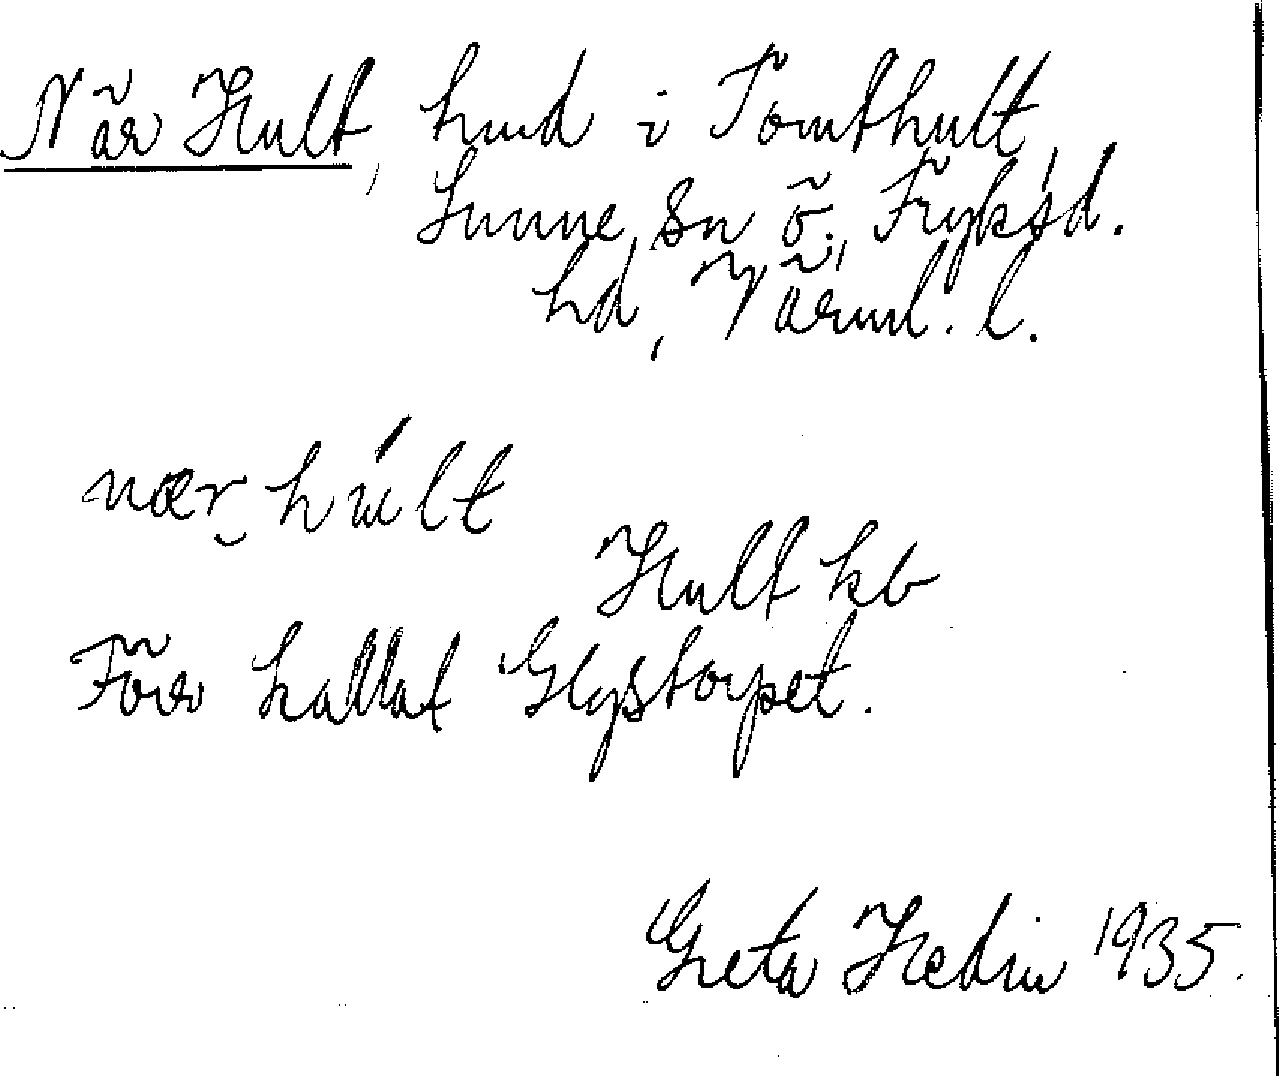 När Hult, hmd i Tomthult,
Sunne sn, Ö. Fryksd.
hd, Värml. l.
nær hu̍lt
Hult kb
Förr kallat Glystorpet.
Greta Hedin 1935.